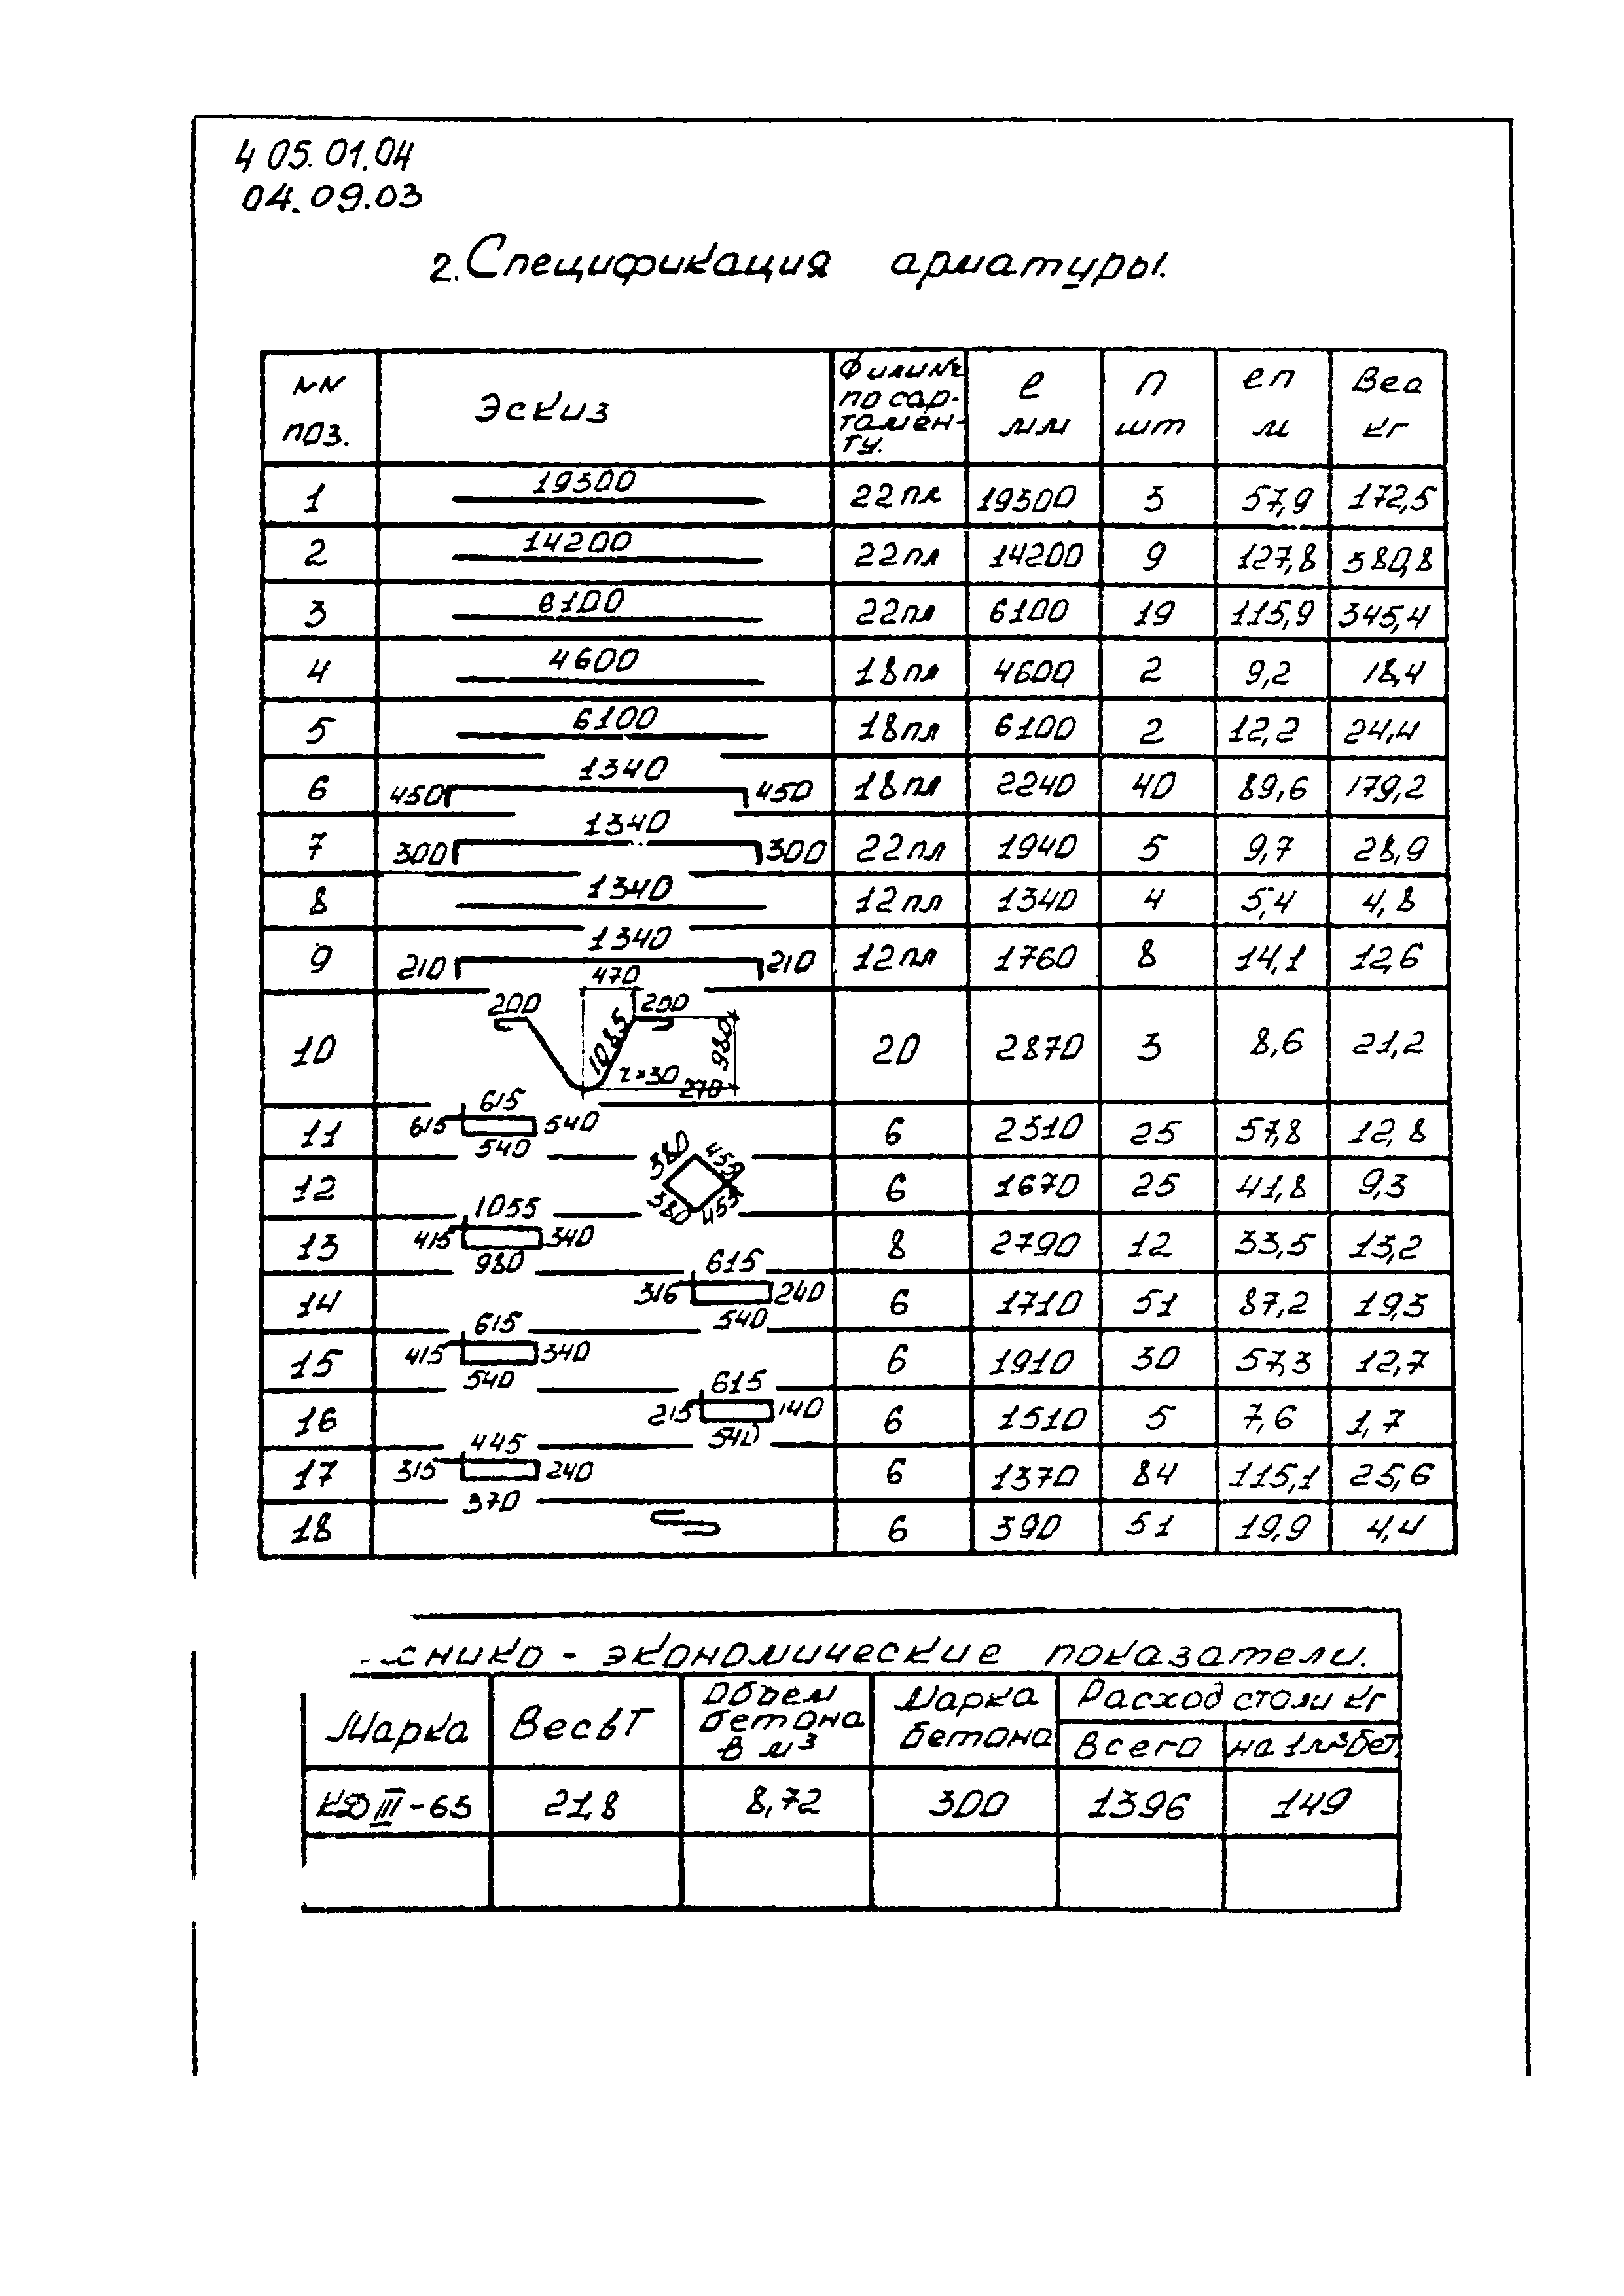 4 05.01.04
04.09.03
2. Спецификация арматуры.
NN поз. Эскиз Ф или № по сор-тамен-ту. ℓ мм п шт ℓп м Вес кг
1 19300 22пл 19300 3 57,9 172,5
2 14200 22пл 14200 9 127,8 380,8
3 6100 22пл 6100 19 115,9 345,4
4 4600 18пл 4600 2 9,2 18,4
5 6100 18пл 6100 2 12,2 24,4
6 450 1340 450 18пл 2240 40 89,6 179,2
7 300 1340 300 22пл 1940 5 9,7 28,9
8 1340 12пл 1340 4 5,4 4,8
9 210 1340 210 12пл 1760 8 14,1 12,6
10 200 470 200 1085 980 r=30 270 20 2870 3 8,6 21,2
11 615 615 540 540 6 2310 25 57,8 12,8
12 380 450 380 455 6 1670 25 41,8 9,3
13 1055 415 340 980 8 2790 12 33,5 13,2
14 615 316 240 540 6 1710 51 87,2 19,3
15 615 415 340 540 6 1910 30 57,3 12,7
16 615 215 140 540 6 1510 5 7,6 1,7
17 445 315 240 370 6 1370 84 115,1 25,6
18 6 390 51 19,9 4,4
хнико - экономические показатели.
Марка Вес в Т Объем бетона в м³ Марка бетона Расход стали кг
Всего на 1м³ бет.
КЭ III-63 21,8 8,72 300 1396 149